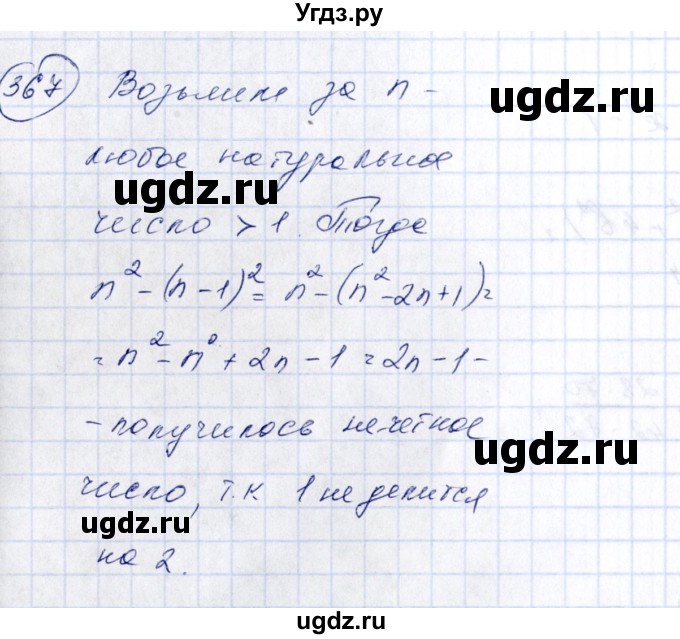 Угдз.ру
367 Возьмем за n -
ugdz.ru
любое натуральное
ugdz.ru
число > 1. Тогда
n² - (n - 1)² = n² - (n² - 2n + 1) =
= n² - n² + 2n - 1 = 2n - 1 -
- получилось нечетное
ugdz.ru
число, т.к 1 не делится
ugdz.ru
на 2.
ugdz.ru